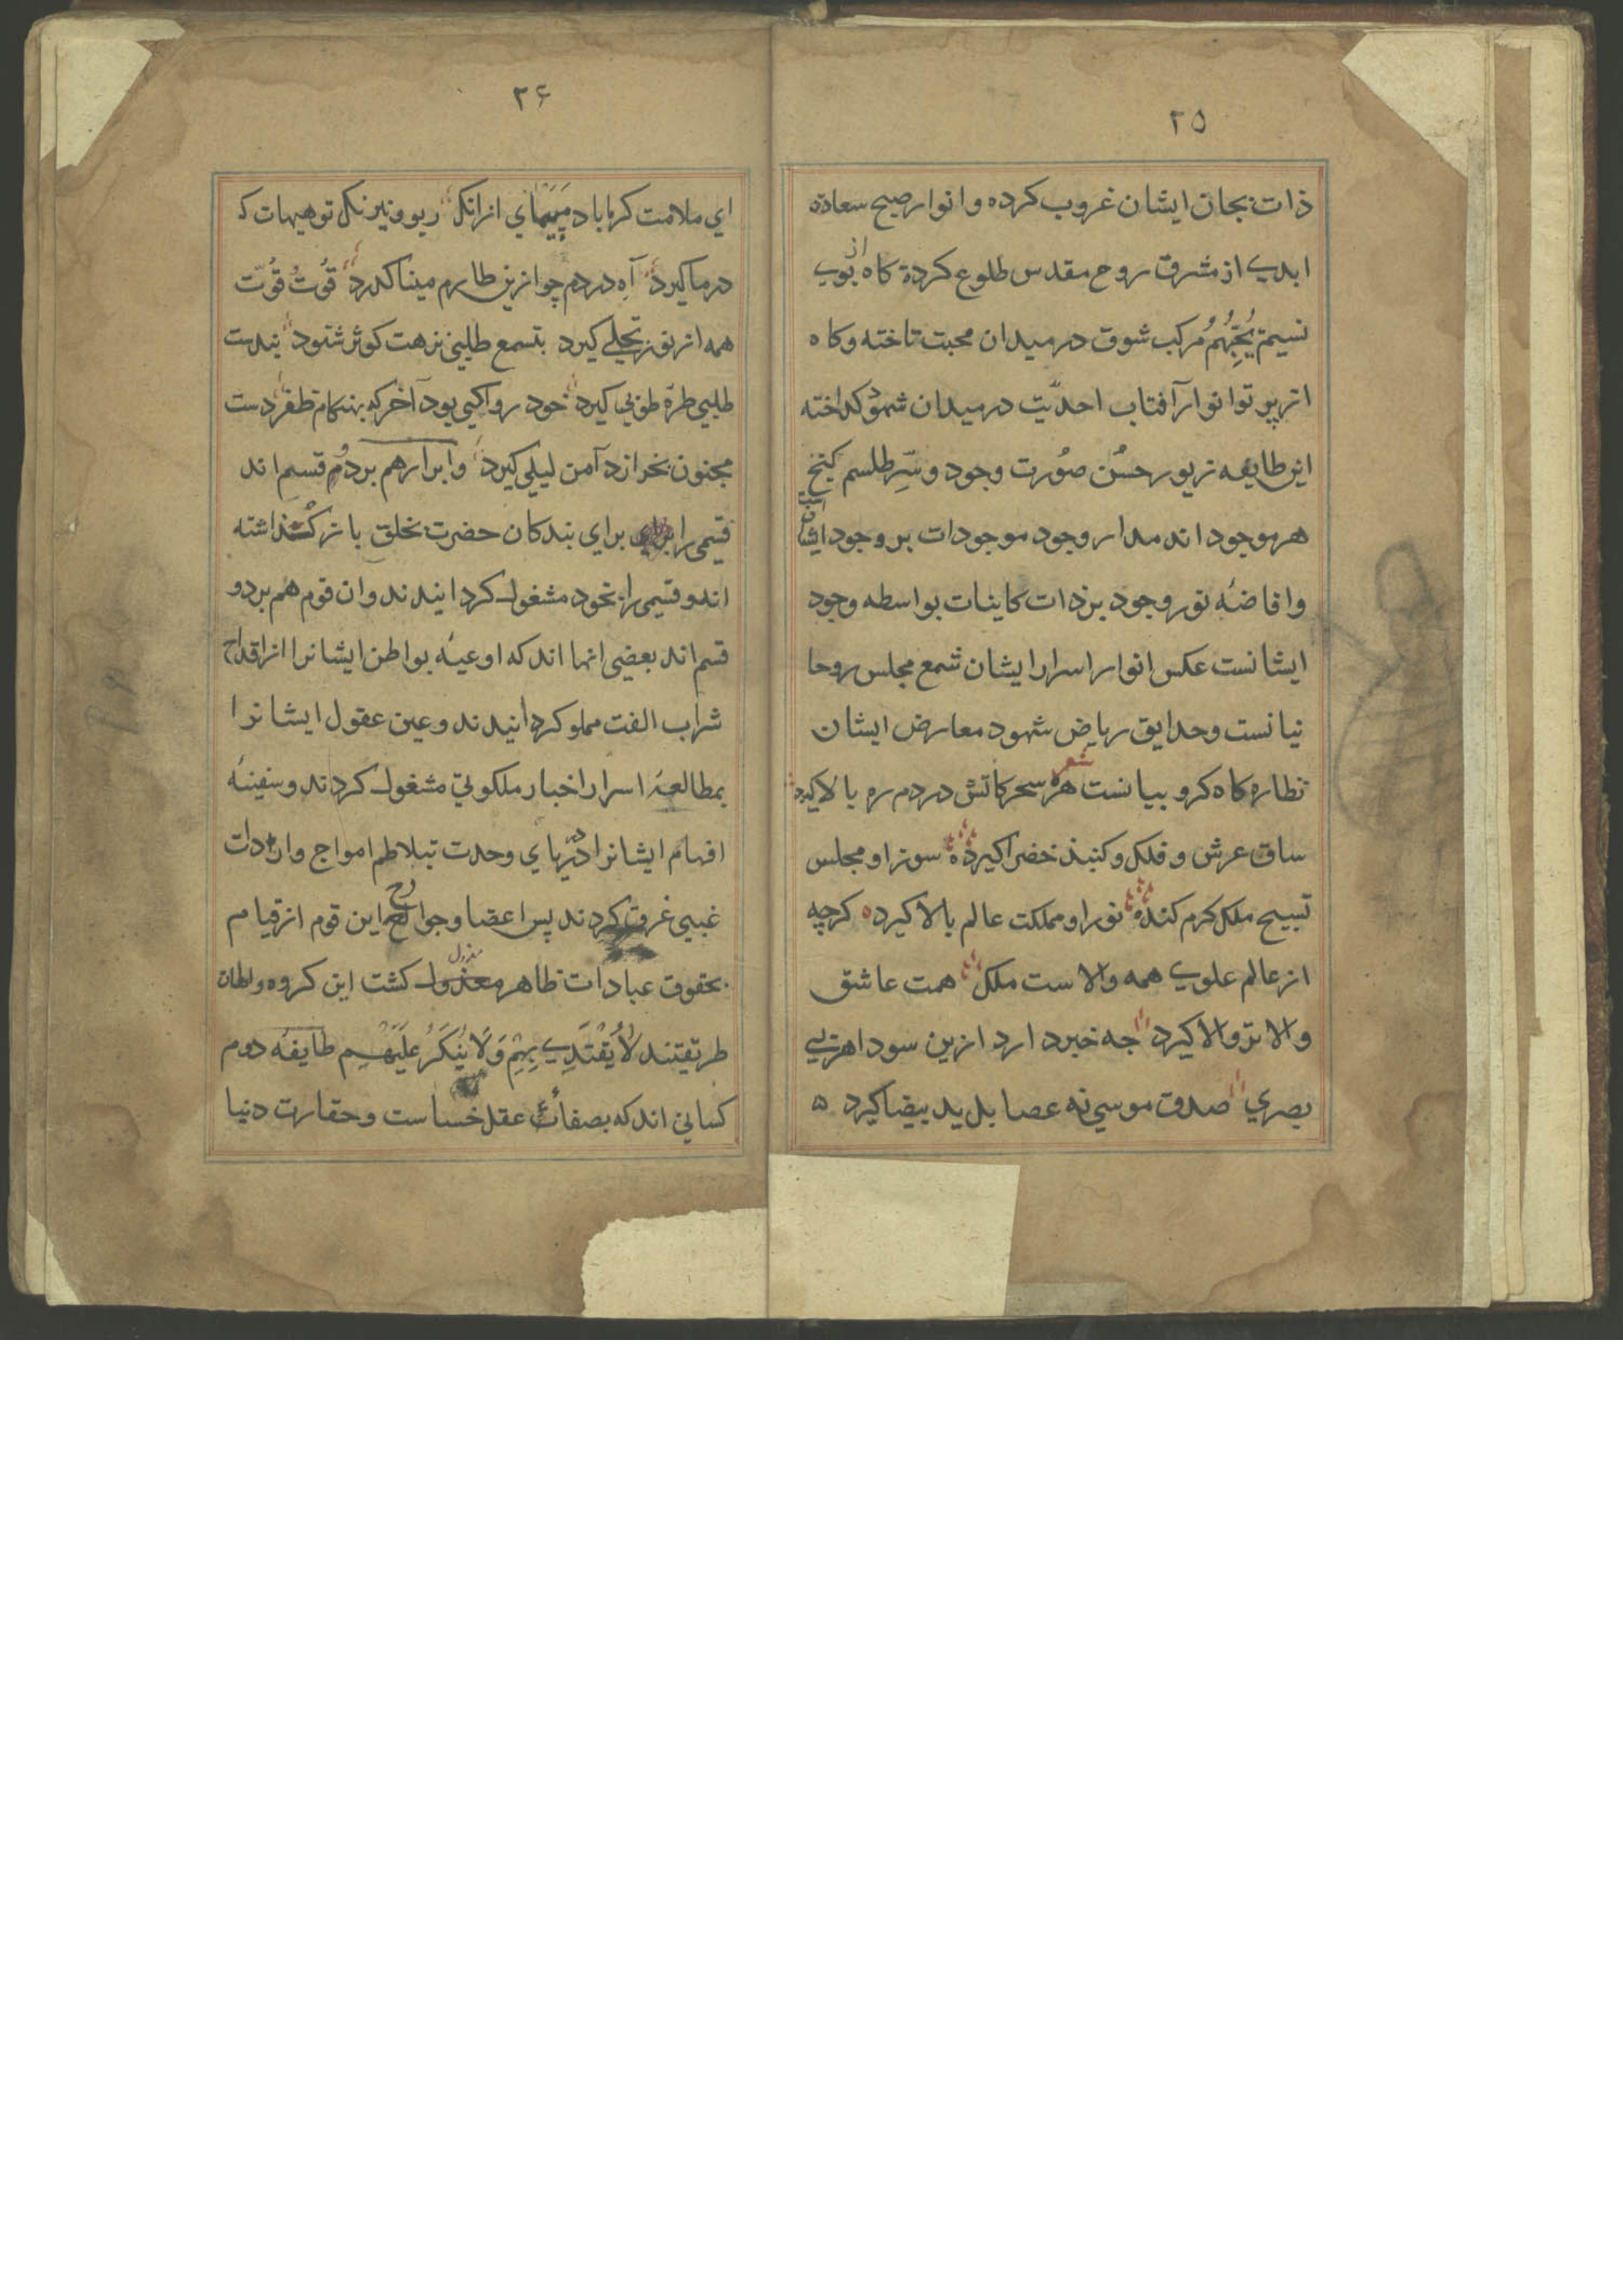 ۲۵
ذات بجان ایشان غروب کرده و انوار صبح سعادة
ابدی از مشرق روح مقدس طلوع کردة کاه از بوی
نسیم یُحِبُّهُمْ مرکب شوق در میدان محبت تاخته و کاه
از پرتو انوار آفتاب احدیّت در میدان شهود کداخته
این طایفه زیور حسُن صوُرت وجود و سِّر طلسم کنج
هر موجود اند مدار وجود موجودات بر وجود ایشا
و افاضهٔ نور وجود بر ذات کاینات بواسطه وجود
ایشانست عکس انوار اسرار ایشان شمع مجلس روحا
نیانست و حدایق ریاض شهود معارض ایشان
نظاره کاه کروبیانست شعر هر سحر کاتش دردم ره بالا کیرد
ساق عرش و فلک و کنبذ خضرا کیرد سوز او مجلس
تسبیح ملک کرم کند نور او مملکت عالم بالا کیرد کرچه
از عالم علوی همه والاست ملک همت عاشق
والا تر و الا کیرد جه خبر دارد ازین سودا هر بی
بصری صدق موسی نه عصا بل ید بیضا کیرد ه
۲۶
ای ملامت کر ما باد مَپَیْمای از انک ریو و نیرنک تو هیهات ک
در ما کیرد آهِ دردم چو ازین طارم مینا کدرد قُوتُ قُوّت
همه از نور تجلی کیرد بتسمع طلبی نزهت کوثر شنود بیدست
طلبی طرّهٔ طوبی کیرد خود روا کی بود آخر که بهنکام ظفر دست
مجنون بخرازد آمن لیلی کیرد و ابرار هم بر دُو قسم اند
قیمی را برای بندکان حضرت بخلق باز کذاشته
اند و قیمی را بخود مشغول کردانیدند و ان قوم هم بر دو
قسم اند بعضی انها اند که اوعیهٔ بواطن ایشانرا از اقداح
شراب الفت مملو کردانیدند و عین عقول ایشانرا
بمطالعهٔ اسرار اخبار ملکوتی مشغول کردند و سفینهٔ
افهام ایشانرا در دریای وحدت بتلاطم امواج واردات
غیبی غرق کردند پس اعضا و جوارح این قوم از قیام
بحقوق عبادات ظاهر معذول کشت این کروه والهان
طریقتند لَا یُقْتَدِی بِهِمْ وَ لَا یُنْکَرُ عَلَیْهِم طایفه دوم
کسانی اند که بصفات عقل خساست و حقارت دنیا